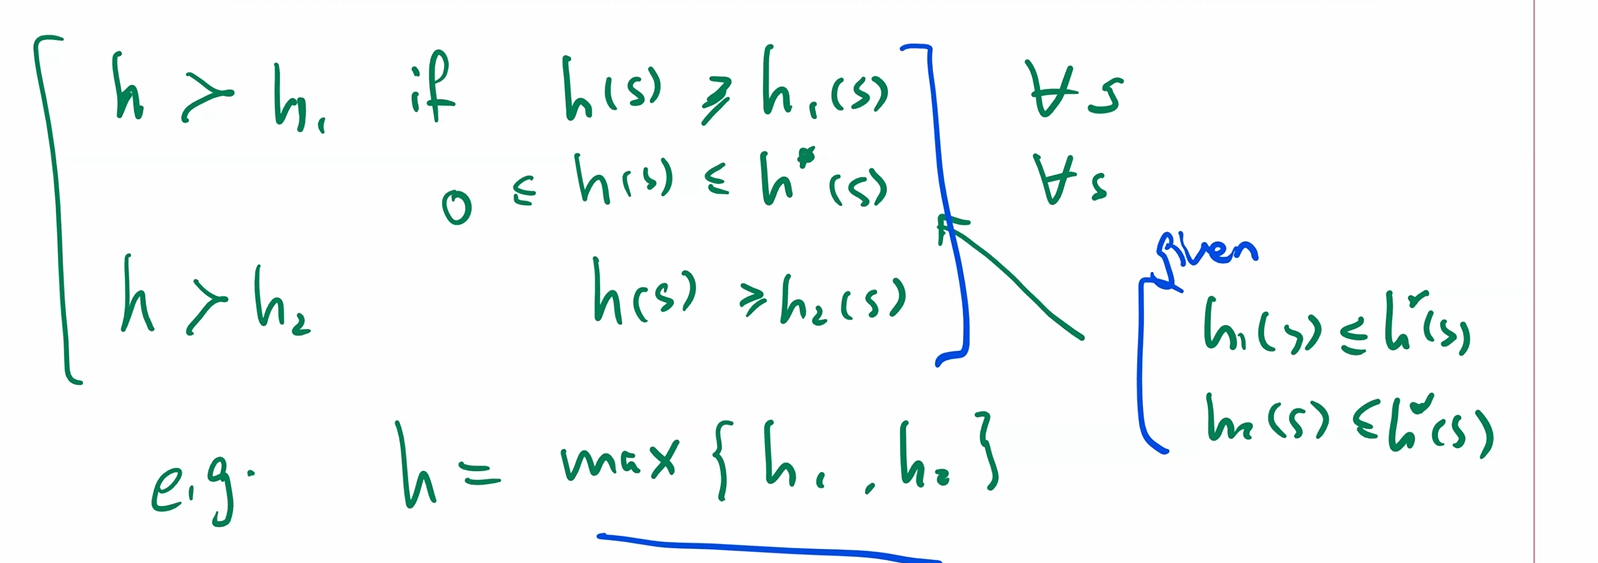 h > h₁ if h(s) ≥ h₁(s) ∀s
0 ≤ h(s) ≤ h*(s) ∀s
h > h₂ h(s) ≥ h₂(s)
given
h₁(s) ≤ h*(s)
h₂(s) ≤ h*(s)
e.g. h = max {h₁, h₂}